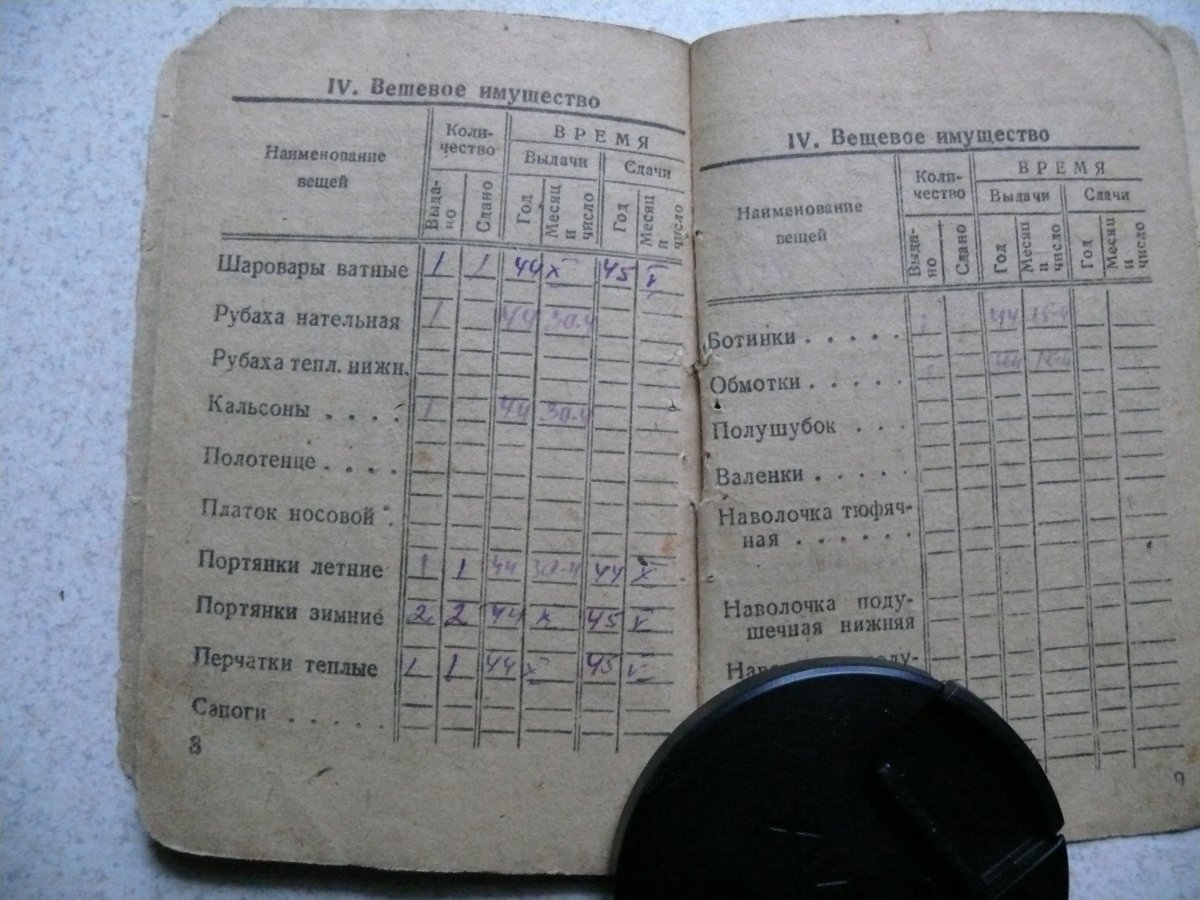 IV. Вещевое имущество
Наименование вещей
Коли-
чество
ВРЕМЯ
Выдачи
Сдачи
Выда-
но
Сдано
Год
Месяц и число
Год
Месяц и число
Шаровары ватные 1 1 44 X 45 V
Рубаха нательная 1 44 30-4
Рубаха тепл. нижн.
Кальсоны . . . . 1 44 30-4
Полотенце . . . .
Платок носовой .
Портянки летние 1 1 44 30-4 44 X
Портянки зимние 2 2 44 X 45 V
Перчатки теплые 1 1 44 X 45 V
Сапоги . . . . .
8
IV. Вещевое имущество
Наименование вещей
Коли-
чество
ВРЕМЯ
Выдачи
Сдачи
Выда-
но
Сдано
Год
Месяц и число
Год
Месяц и число
Ботинки . . . . . 1 44 15-4
Обмотки . . . . . 1 44
Полушубок . . .
Валенки . . . . .
Наволочка тюфяч-
ная . . . . . .
Наволочка поду-
шечная нижняя
9